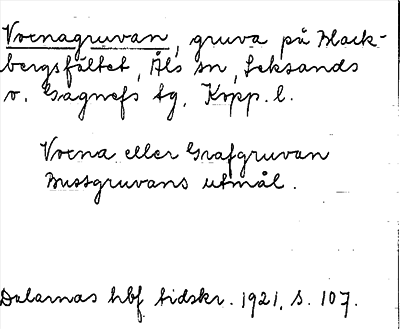 Vocnagruvan, gruva på Black-
bergsfältet, Åls sn, Leksands
o. Gagnefs tg, Kopp. l.
Vocna eller Grafgruvan
Bussgruvans utmål.
Dalarnas hbf tidskr. 1921, s. 107.